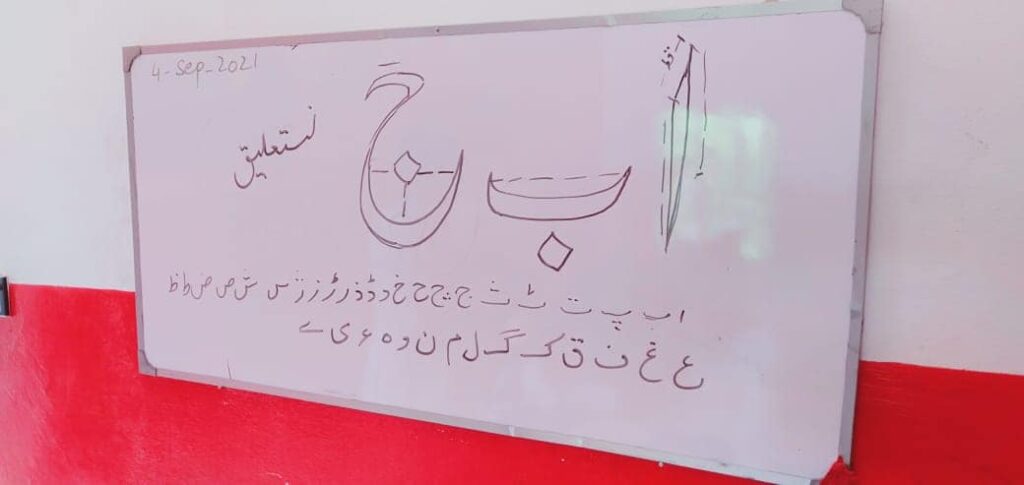 4-Sep-2021
نستعلیق
ا ب ج
ا ب پ ت ٹ ث ج چ ح خ د ڈ ذ ر ڑ ز ژ س ش ص ض ط ظ
ع غ ف ق ک گ ل م ن و ہ ء ی ے